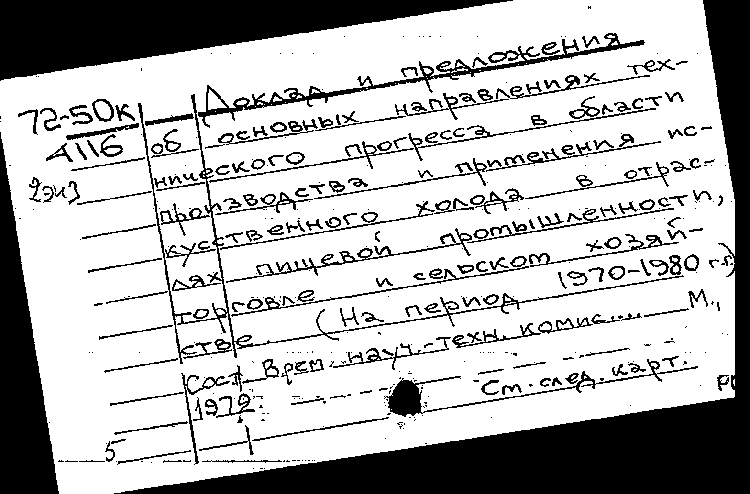 72-50к Доклад и предложения
4116 об основных направлениях тех-
2экз нического прогресса в области
производства и применения ис-
кусственного холода в отрас-
лях пищевой промышленности,
торговле и сельском хозяй-
стве. (На период 1970-1980 г.г.)
Сост. Врем. науч.-техн. комис.... М.,
1972.
См. след. карт.
5